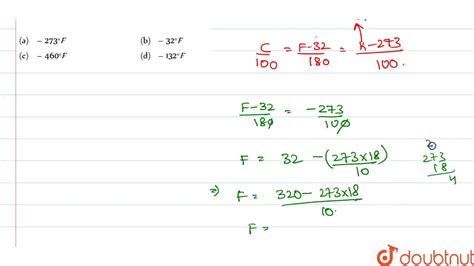 (a) – 273°F (b) – 32°F
(c) – 460°F (d) – 132°F
C/100 = F-32/180 = K-273/100.
F-32/180 = -273/100
F = 32 - (273×18)/10
⇒) F = 320 - 273×18/10.
F =
273
18
4
doubtnut